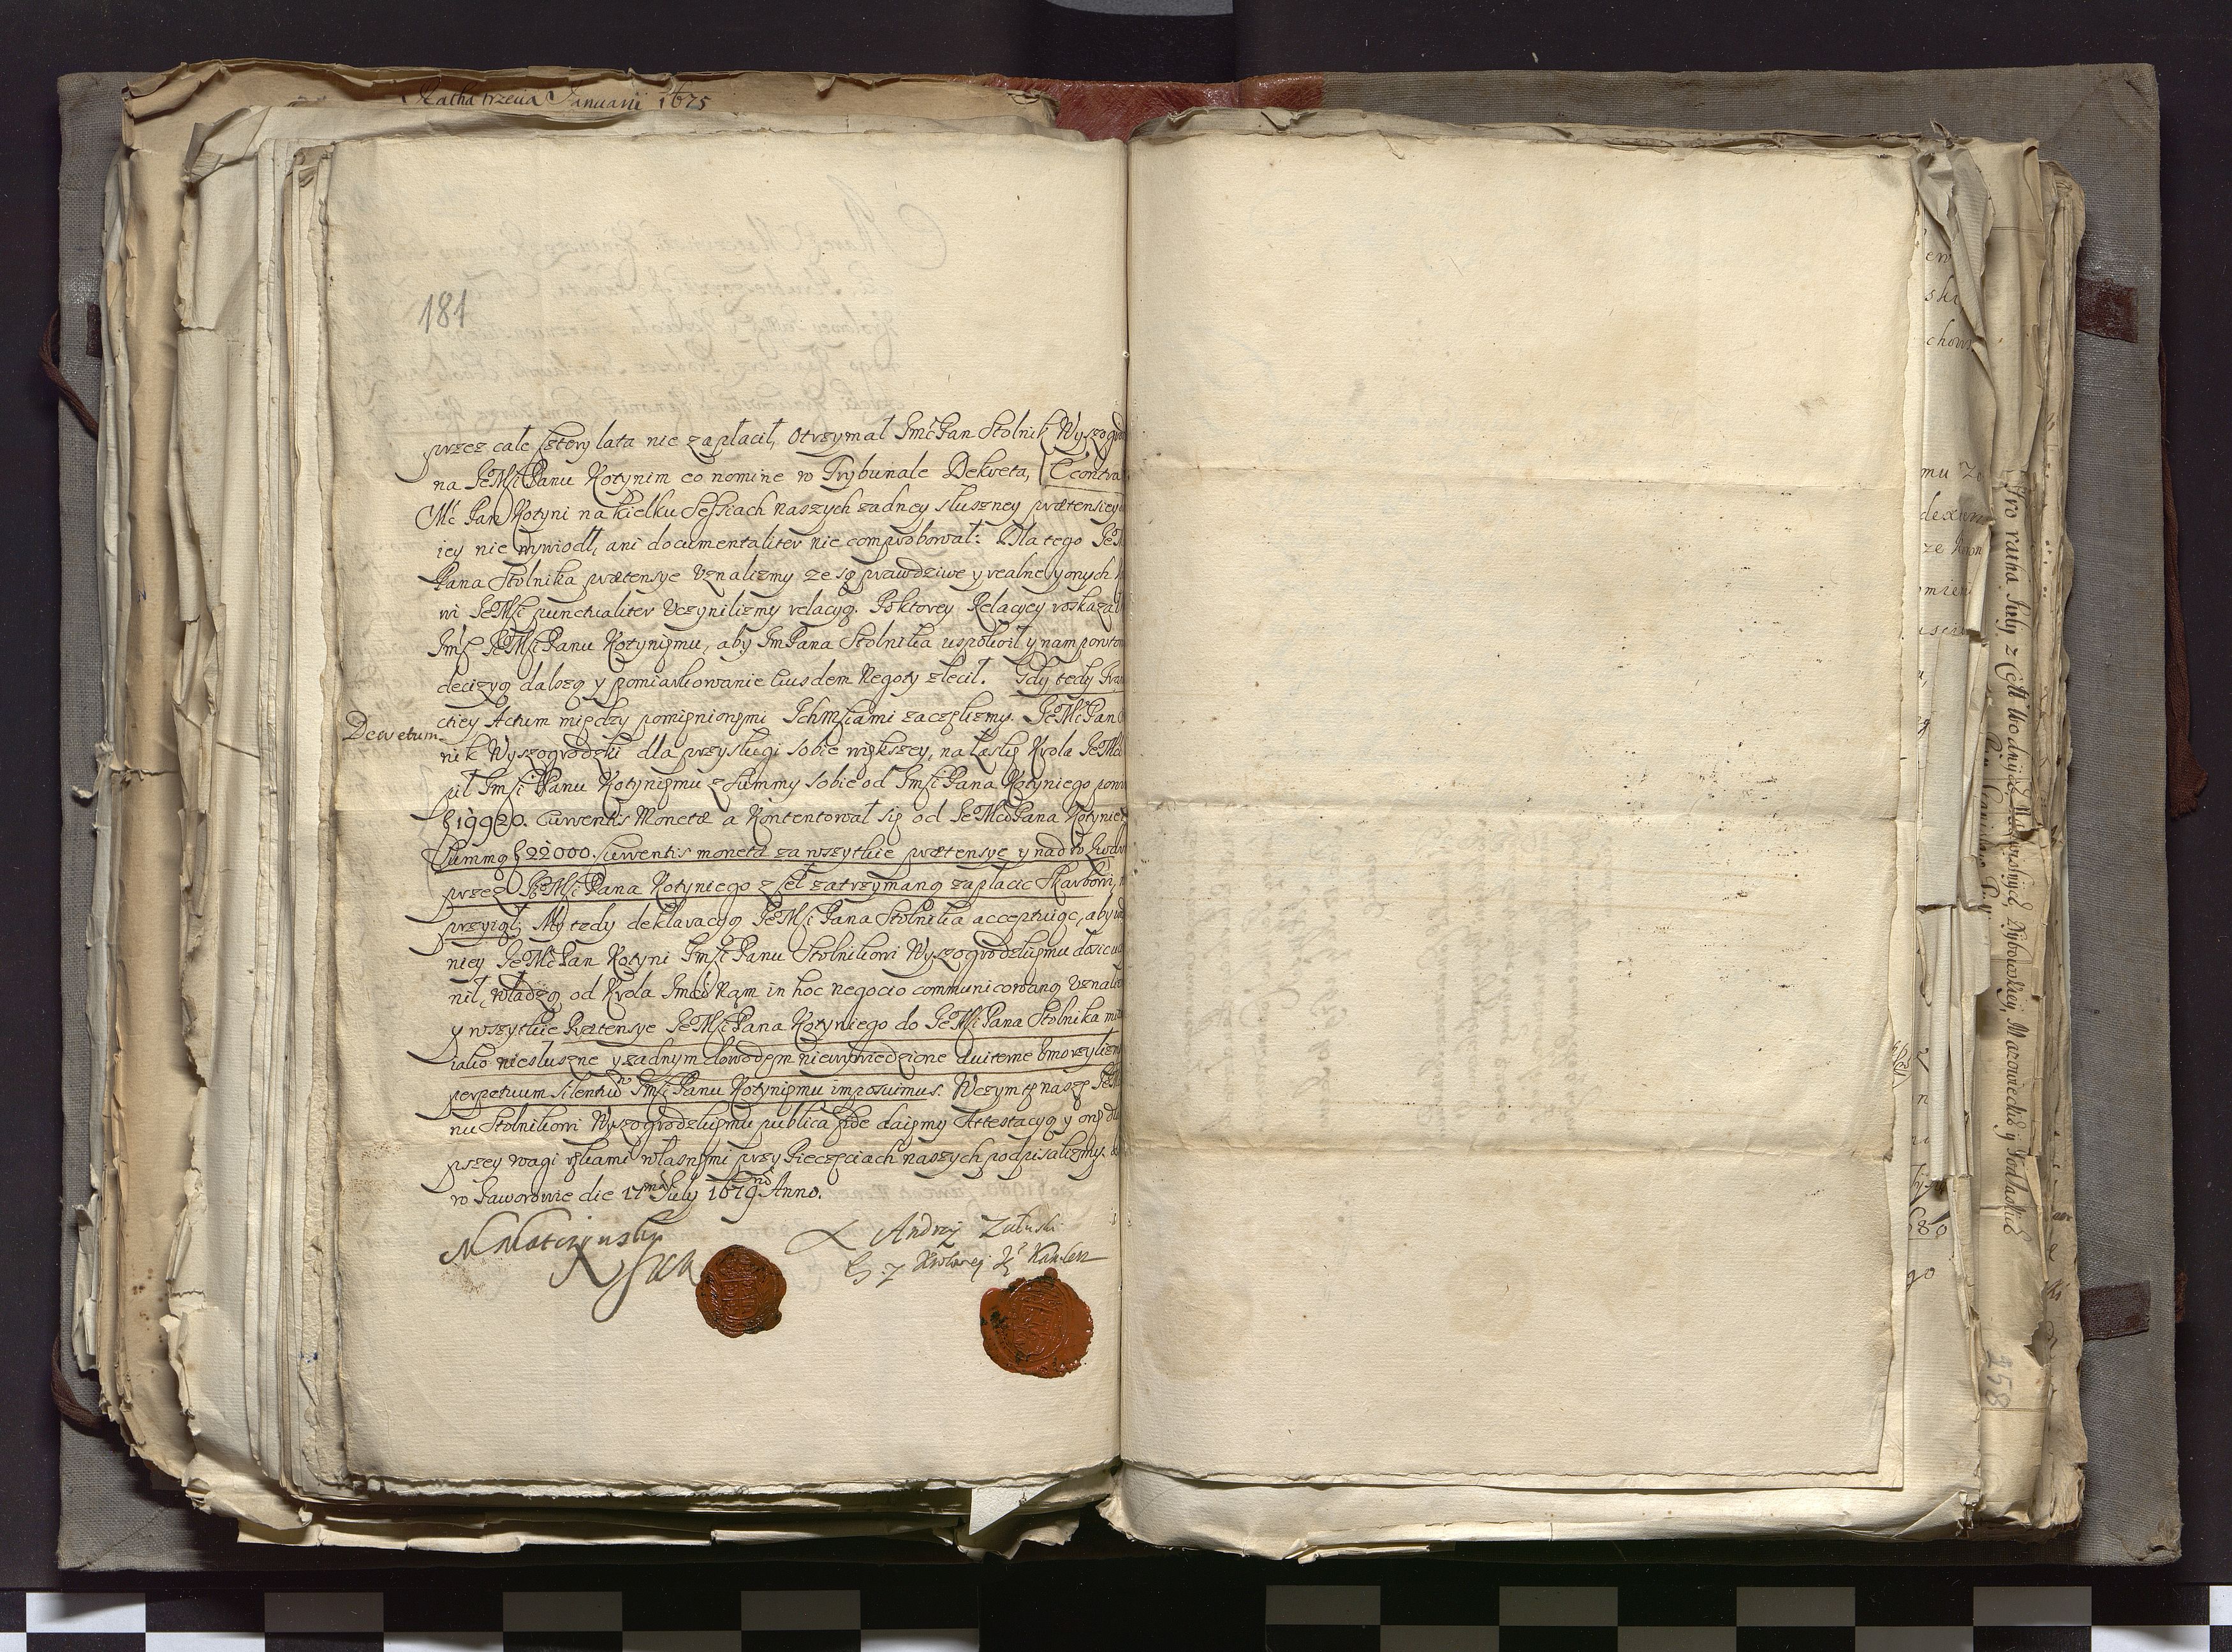 Ratha trzecia Januarii 1675
181
przez całe cztery lata nie zapłacił, otrzymał Jmć Pan Stolnik Wyszogrod
na JeMści Panu Kotynim eo nomine w Trybunale Dekreta, Econtra
Mć Pan Kotyni na kielku Sessiach naszych zadney słuszney prætensiey
iey nie wywiodł, ani documentaliter nie comprobował: Dla tego JeM
Pana Stolnika prætensye Uznalizmy ze są prawdziwe y realne y onych
wi JeMści punctualiter Uczynilizmy relacyą. Po ktorey Relacyey roskazał
Jmści JeMści Panu Kotyniemu, aby Jm Pana Stolnika uspokoił y nam powtor
decizyą dalszą y pomiarkowanie Eiusdem Negoty zlecił. Gdy tedy Tra
ctiey Actum między pomięnionęmi IchMściami zaczęlizmy. JeMć Pan
Decretum
nik Wyszogrodzki dla przysługi sobie większey, na Łaskę Krola JeMci
pił Jmści Panu Kotyniemu z Summy sobie od Jmści Pana Kotyniego
f 19920. Currentis Monetæ a Kontentował się od JeMci Pana Kotynie
Summą f 22000. Currentis moneta za wszytkie prætensye y nad to
przez JeMści Pana Kotyniego z Ceł zatrzymaną zapłacic Skarbowi,
przyiął, My tedy deklaracyą JeMści Pana Stolnika acceptuiąc, aby
niey JeMć Pan Kotyni Jmści Panu Stolnikowi Wyszogrodzkiemu dosic
nił, władzą od Krola Jmci Nam in hoc negocio communicowaną Uznali
y wszytkie Prætensye JeMści Pana Kotyniego do JeMści Pana Stolnika
iako niesłuszne y zadnym dowodem niewywiedzione Umorzylizm
perpetuum silentium Jmści Panu Kotyniemu imposuimus. W czym tę naszę
nu Stolnikowi Wyszogrodzkiemu publica fide daięmy Attestacyą y onę dla
pszey wagi rękami własnęmi przy Pieczęciach naszych podpisalizmy.
w Jaworowie die 17ma July 1679no Anno.
M Matczynsky
Andrzej Załuski
Krolowej Kanclerz
ew
ski
chow
mu
680
go
Pro ratha July z Cell Wodnych Nadwislnych, Nyborskiey, Mazowieckich y Podlaskich
258